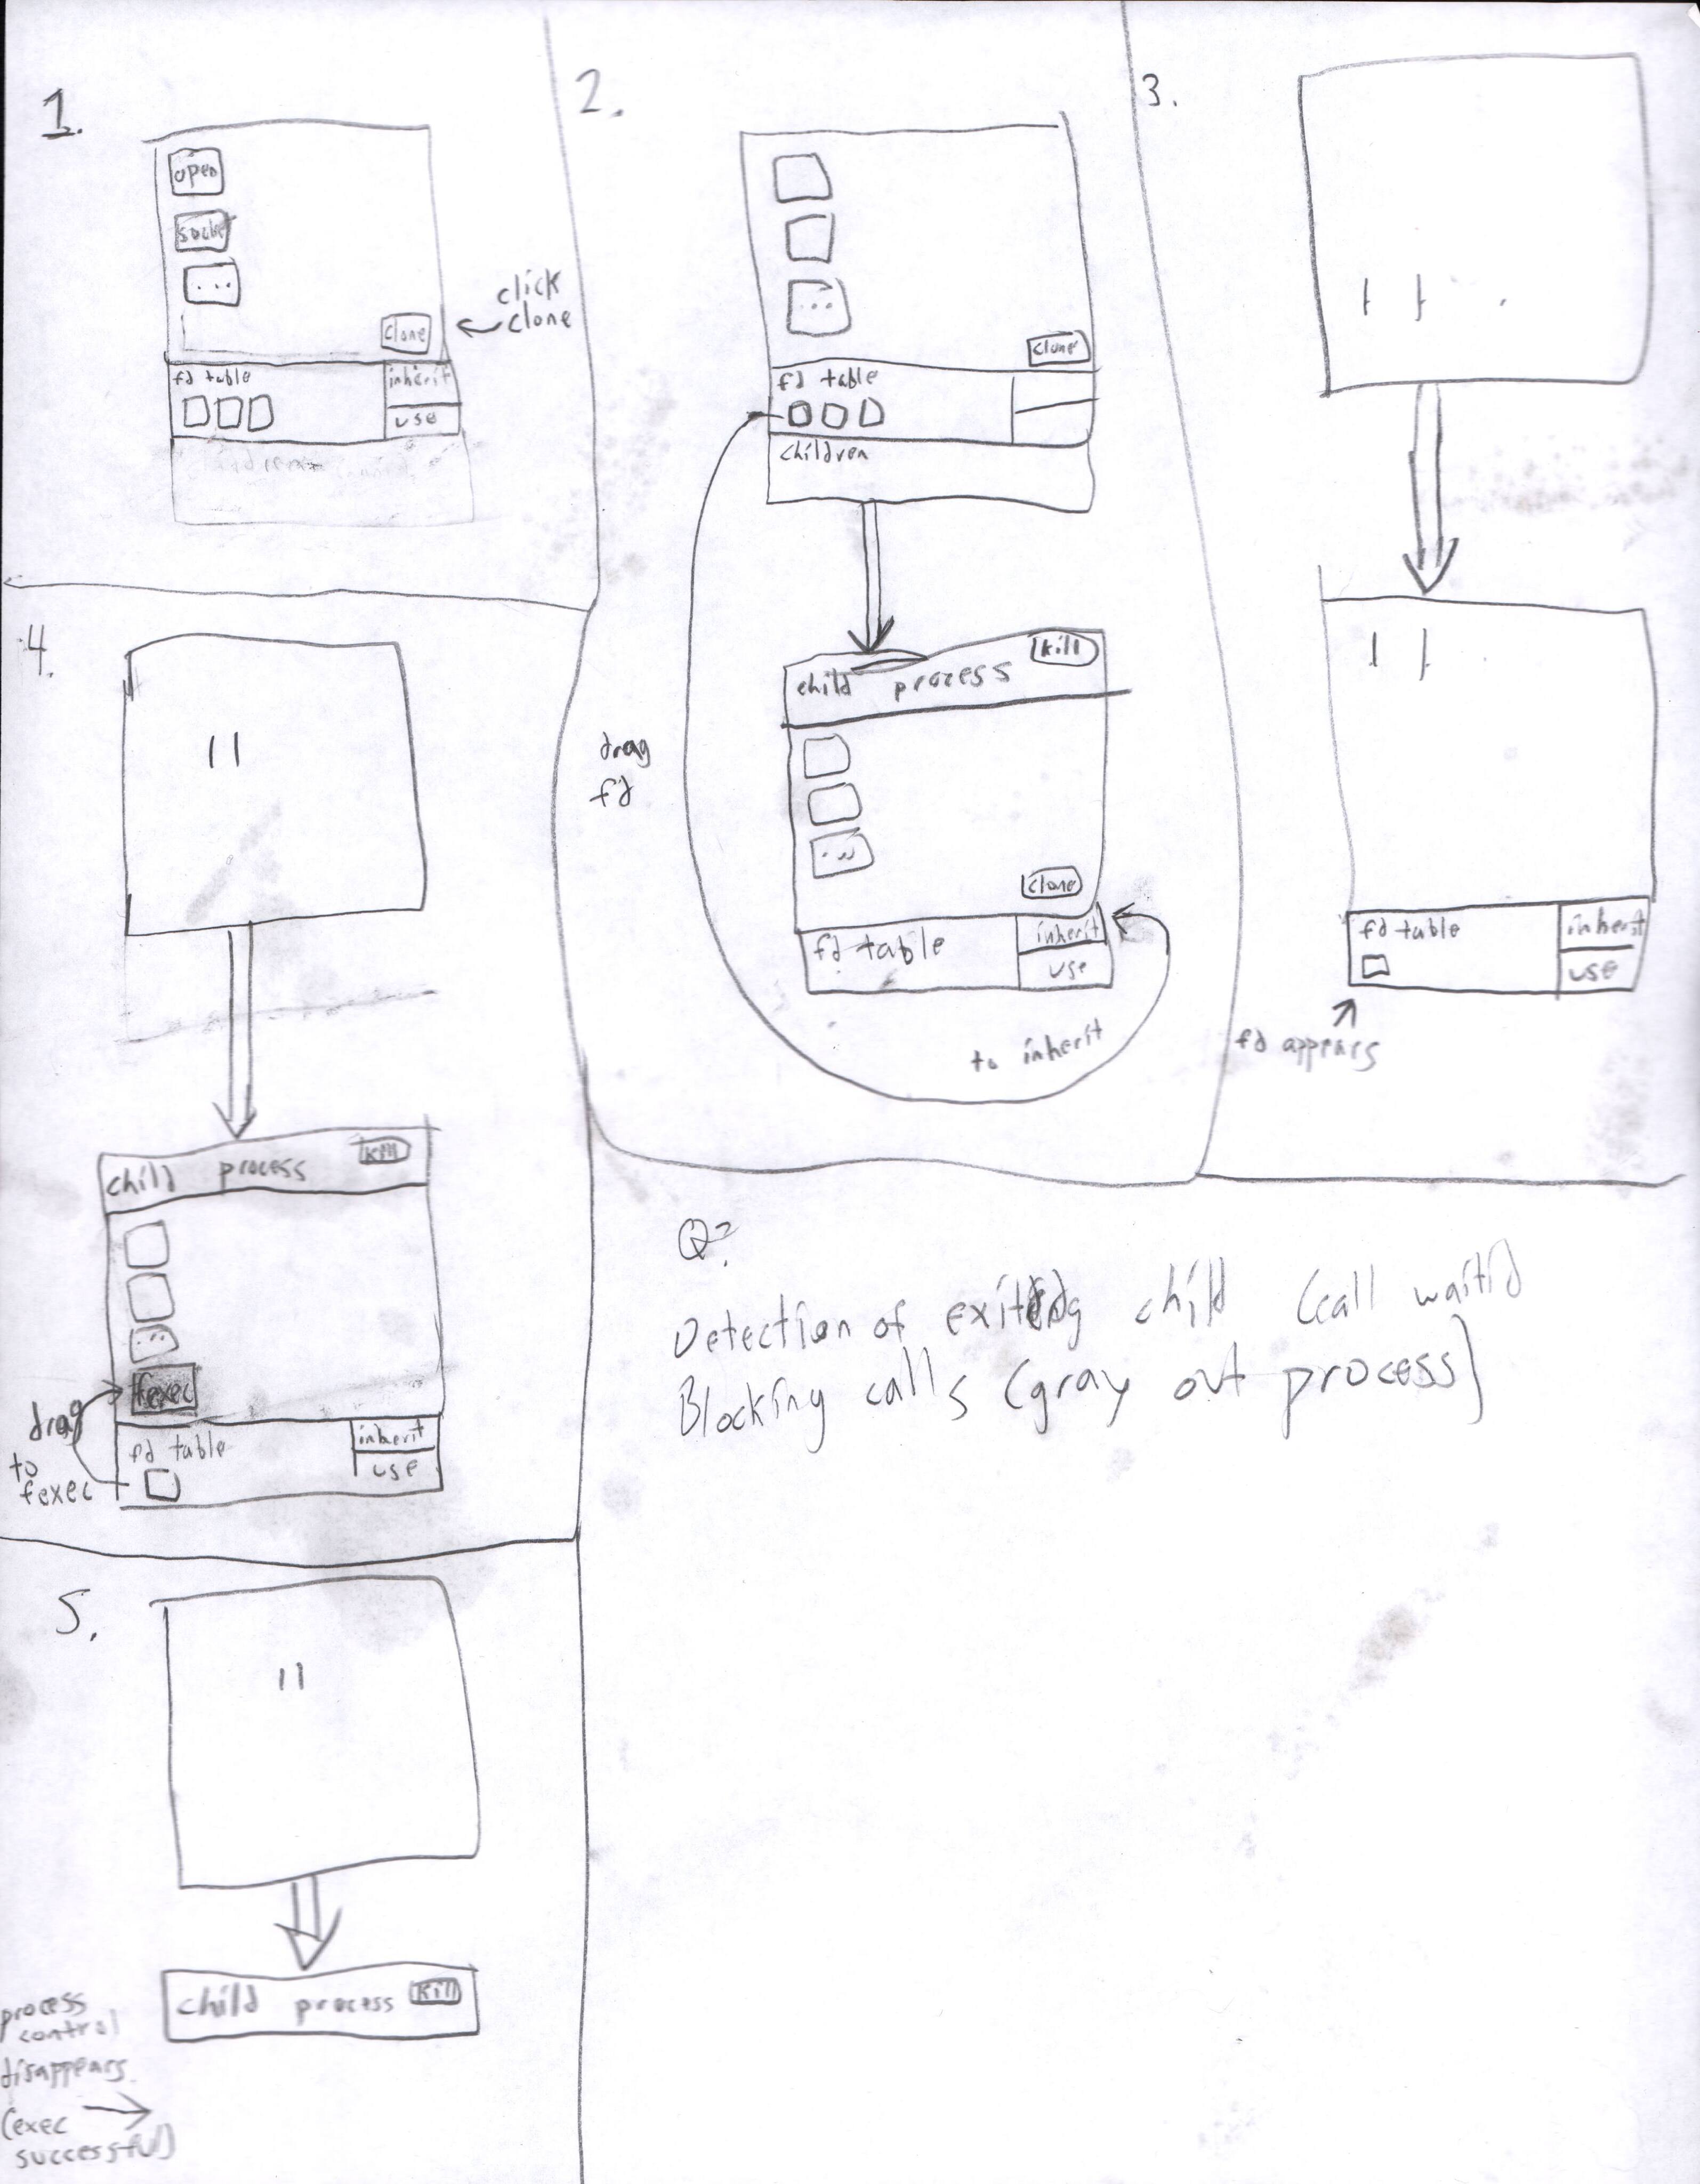 1.
open
...
clone
click
clone
fd table
inherit
use
2.
...
clone
fd table
children
child process
kill
...
clone
fd table
inherit
use
drag
fd
to inherit
3.
fd table
inherit
use
fd appears
4.
child process
kill
...
fexec
drag
to
fexec
fd table
inherit
use
5.
child process
kill
process
control
disappears
(exec
successful)
Q?
Detection of exiting child (call waitid
Blocking calls (gray out process)